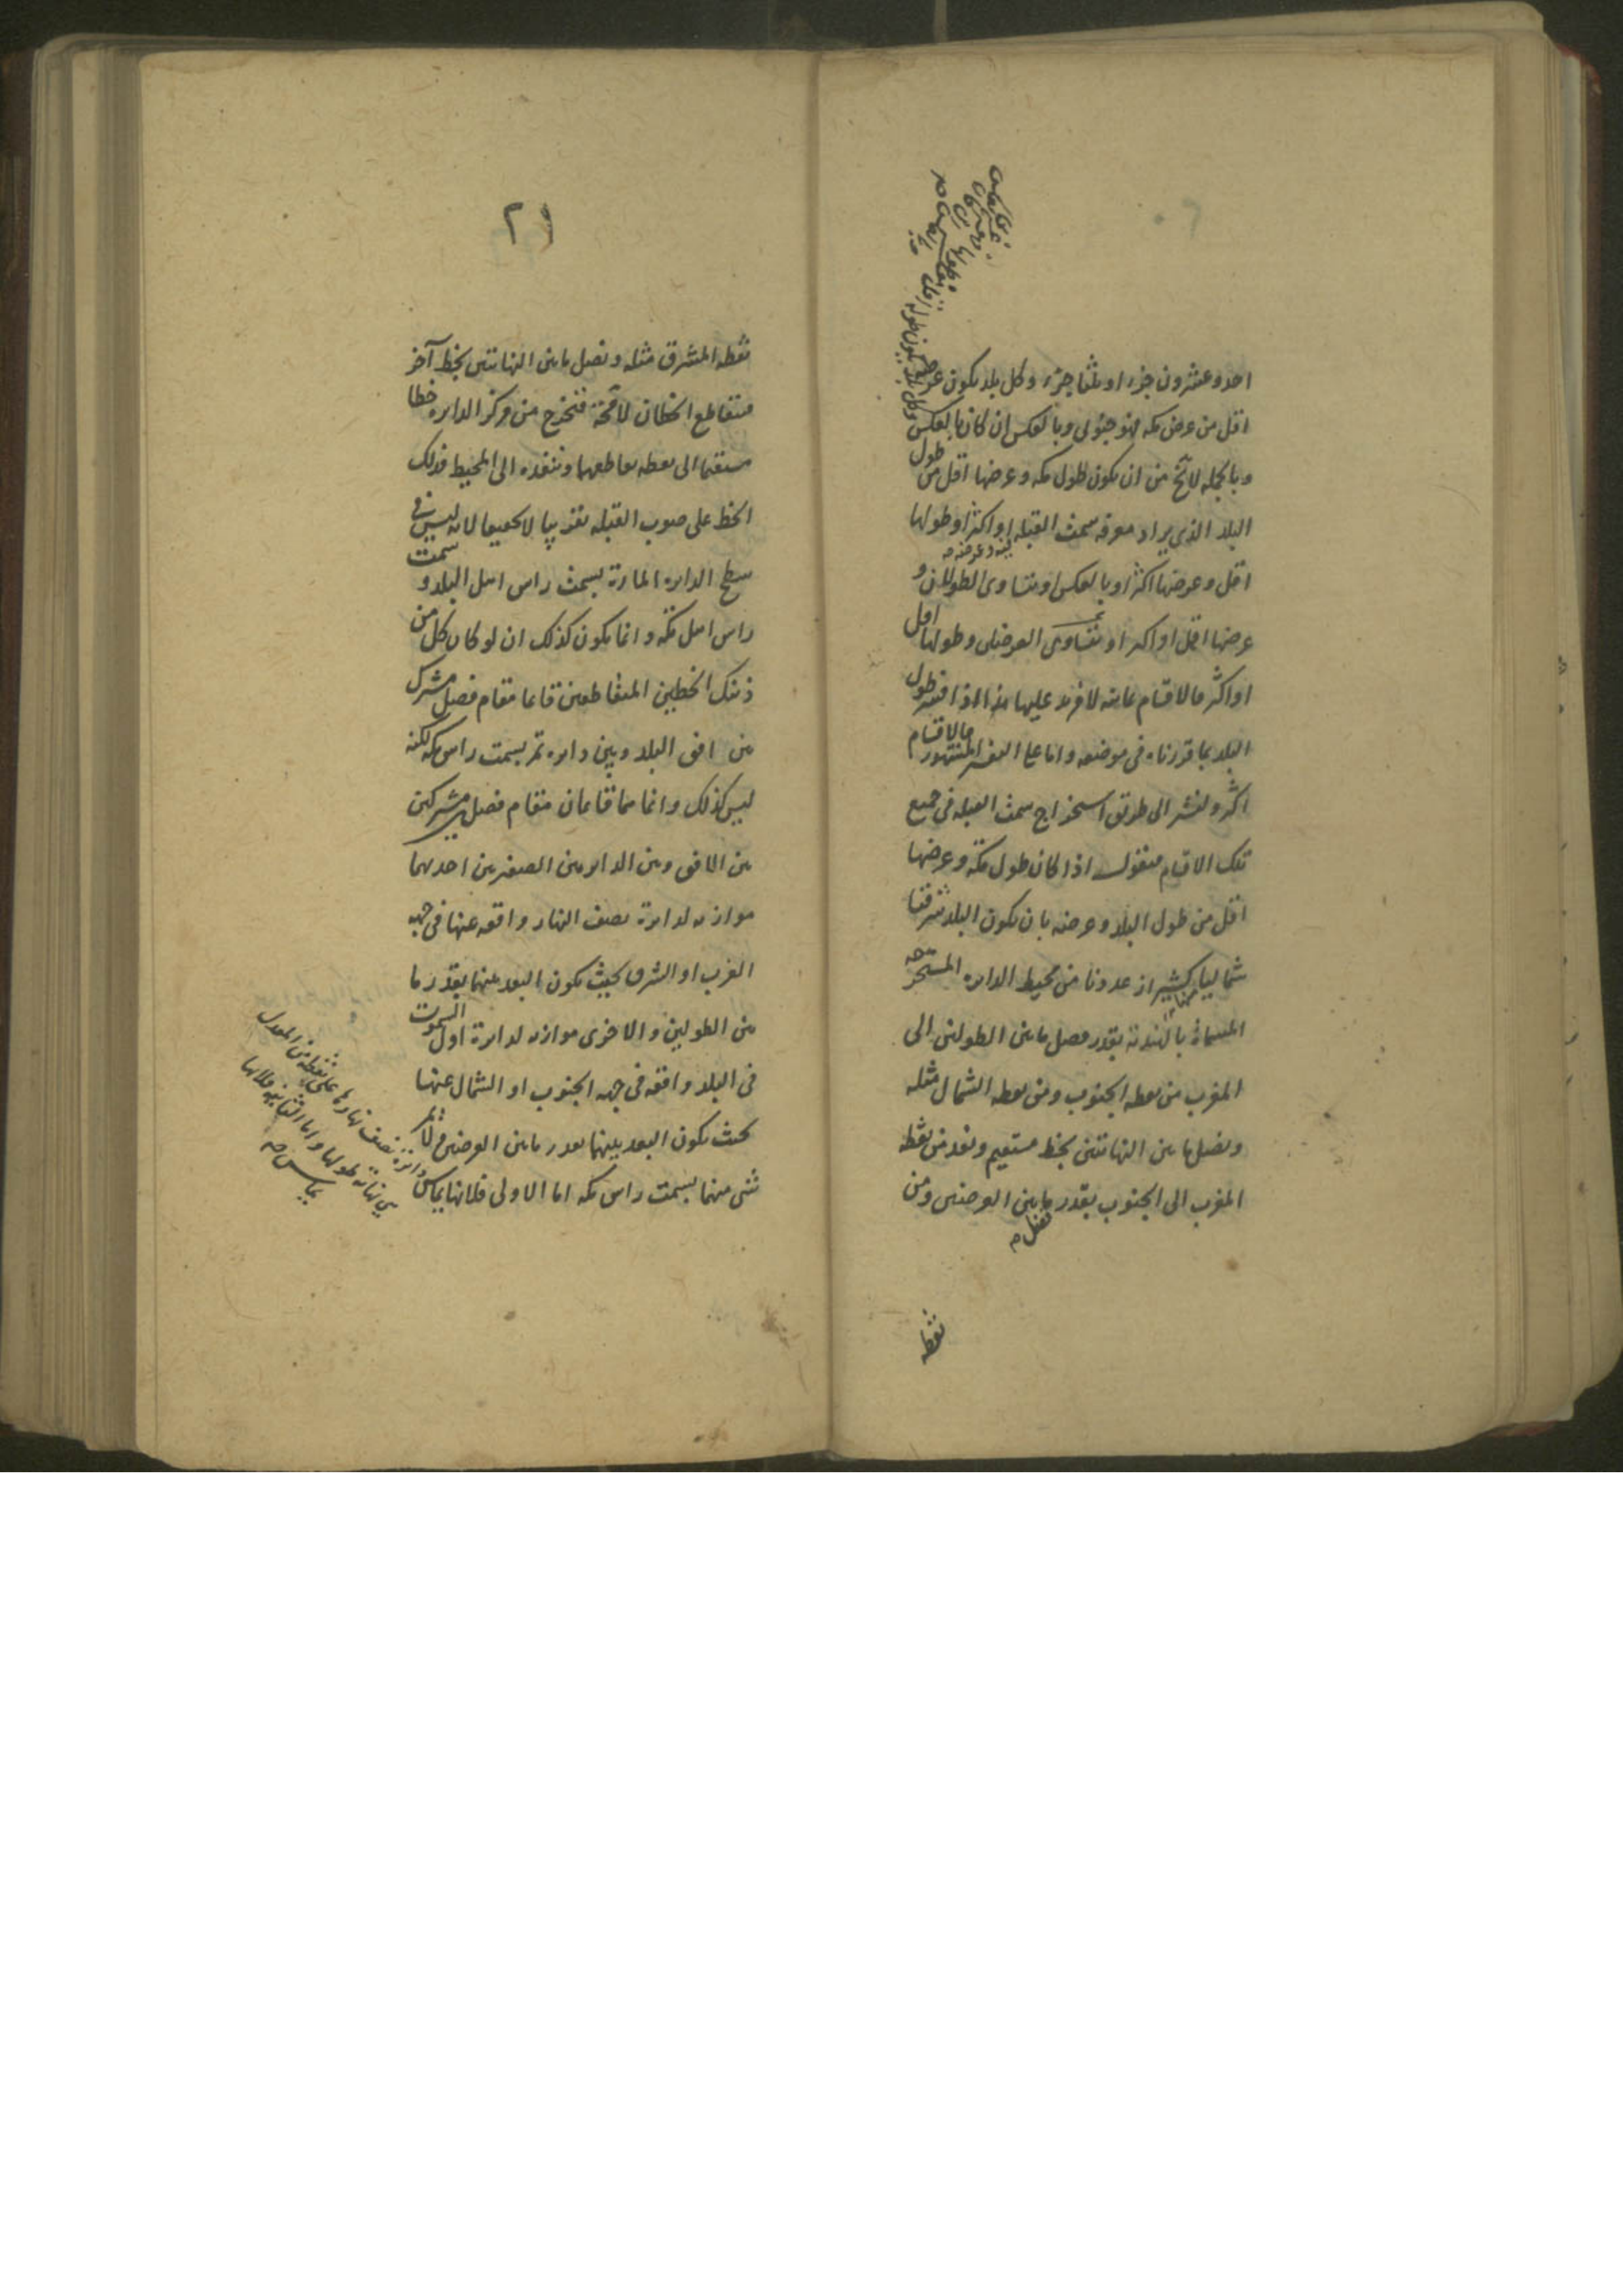 احد وعشرون جزء او ثلثا جزء وكل بلد يكون عرضه
اقل من عرض مكه فهو جنوبى وبالعكس ان كان بالعكس
وبالجمله لا يخ من ان يكون طول مكه وعرضها اقل من طول
البلد الذى يراد معرفه سمت القبله او اكثر او طولها
فيه وعرضه
اقل وعرضها اكثر او بالعكس او يتساوى الطولان و
عرضها اقل او اكثر او يتساوى العرضان وطولها اقل
او اكثر فالاقسام ثمانيه لا مزيد عليها هذا اذا فسر طول
البلد بما قررناه فى موضعه واما على التفسير المشهور فالاقسام
اكثر ولنشر الى طريق استخراج سمت القبله فى جميع
تلك الاقسام فنقول اذا كان طول مكة وعرضها
اقل من طول البلد وعرضه بان يكون البلد شرقيا
شماليا كشيراز عددنا من محيط الدايره المستخرجه
المسماة بالهندية بقدر فضل مابين الطولين الى
المغرب من نقطه الجنوب ومن نقطه الشمال مثله
ونصل ما بين النهايتين بخط مستقيم ونعد من نقطه
المغرب الى الجنوب بقدر مابين العرضين ومن
فضل
نقطه
٢٩
نقطه المشرق مثله ونصل مابين النهايتين بخط آخر
فيتقاطع الخطان لا محة فنخرج من مركز الدايره خطا
مستقيما الى نقطه تقاطعهما وننفذه الى المحيط فذلك
الخط على صوب القبله تقريبا لا تحقيقا لانه ليس فى
سطح الدايره المارة بسمت راس اهل البلد و سمت
راس اهل مكة وانما يكون كذلك ان لو كان كل من
ذينك الخطين المتقاطعين قائما مقام فصل مشترك
بين افق البلد وبين دايره تمر بسمت راس مكه لكنه
ليس كذلك وانما هما قائمان مقام فصلين مشتركين
بين الافق وبين الدايرتين الصغيرتين احديهما
موازيه لدايرة نصف النهار واقعه عنها فى جهه
الغرب او الشرق بحيث يكون البعد بينهما بقدر ما
بين الطولين والاخرى موازيه لدايرة اول السموت
فى البلد واقعه فى جهه الجنوب او الشمال عنها
بحيث يكون البعد بينهما بقدر مابين العرضين ولا تمر
شئ منهما بسمت راس مكه اما الاولى فلانها تماس
دائرة نصف نهارها على نقطة من المعدل
هى نهاية طولها واما الثانيه فلانها
تماس